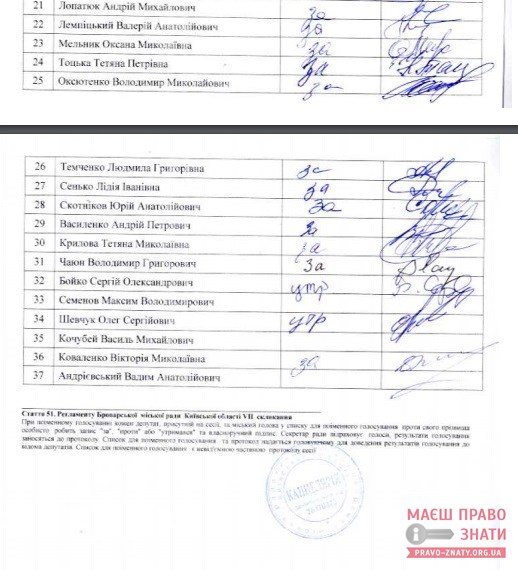 21 Лопатюк Андрій Михайлович за
22 Лемпіцький Валерій Анатолійович за
23 Мельник Оксана Миколаївна за
24 Тоцька Тетяна Петрівна за
25 Оксютенко Володимир Миколайович за
26 Темченко Людмила Григорівна за
27 Сенько Лідія Іванівна за
28 Скотніков Юрій Анатолійович за
29 Василенко Андрій Петрович за
30 Крилова Тетяна Миколаївна за
31 Чаюн Володимир Григорович за
32 Бойко Сергій Олександрович утр
33 Семенов Максим Володимирович
34 Шевчук Олег Сергійович утр
35 Кочубей Василь Михайлович
36 Коваленко Вікторія Миколаївна за
37 Андрієвський Вадим Анатолійович
Стаття 51. Регламенту Броварської міської ради Київської області VII скликання
При поіменному голосуванні кожен депутат, присутній на сесії, та міський голова у списку для поіменного голосування проти свого прізвища
особисто робить запис "за", "проти" або "утримався" та власноручний підпис. Секретар ради підраховує голоси, результати голосування
заносяться до протоколу. Список для поіменного голосування та протокол надається головуючому для доведення результатів голосування до
відома депутатів. Список для поіменного голосування є невід'ємною частиною протоколу сесії
МАЄШ ПРАВО
ЗНАТИ
PRAVO-ZNATY.ORG.UA